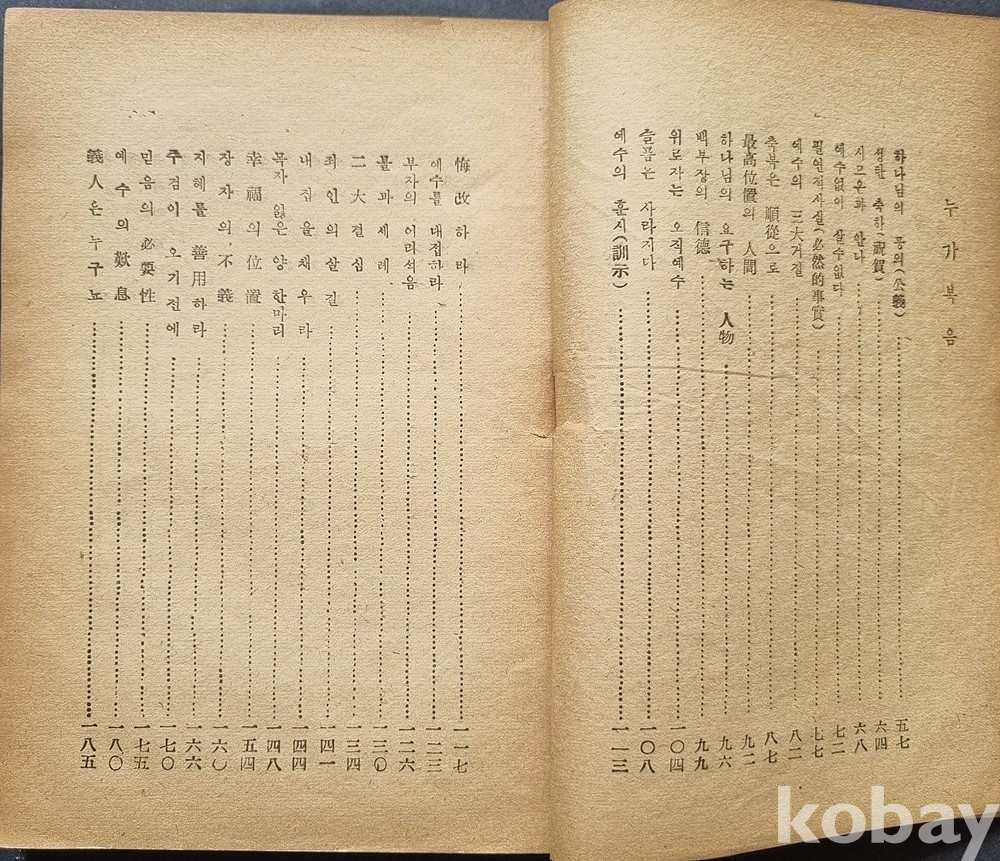 누가복음
하나님의 공의(公義) 五七
성탄 축하(祝賀) 六四
시므온과 안나 六八
예수없이 살수없다 七二
필연적사실(必然的事實) 七七
예수의 三大거절 八二
축복은 順從으로 八七
最高位置의 人間 九二
하나님의 요구하는 人物 九六
백부장의 信德 九九
위로자는 오직예수 一〇四
슬픔은 사라지다 一〇八
예수의 훈시(訓示) 一一三
悔改하라 一一七
예수를 대접하라 一二三
부자의 어리석음 一二六
불과 세례 一三〇
二大결심 一三四
죄인의 살길 一四一
내 집을 채우라 一四四
목자 잃은 양 한마리 一四八
幸福의 位置 一五四
장자의 不義 一六〇
지혜를 善用하라 一六六
주검이 오기전에 一七〇
믿음의 必要性 一七五
예수의 歎息 一八〇
義人은 누구뇨 一八五
kobay